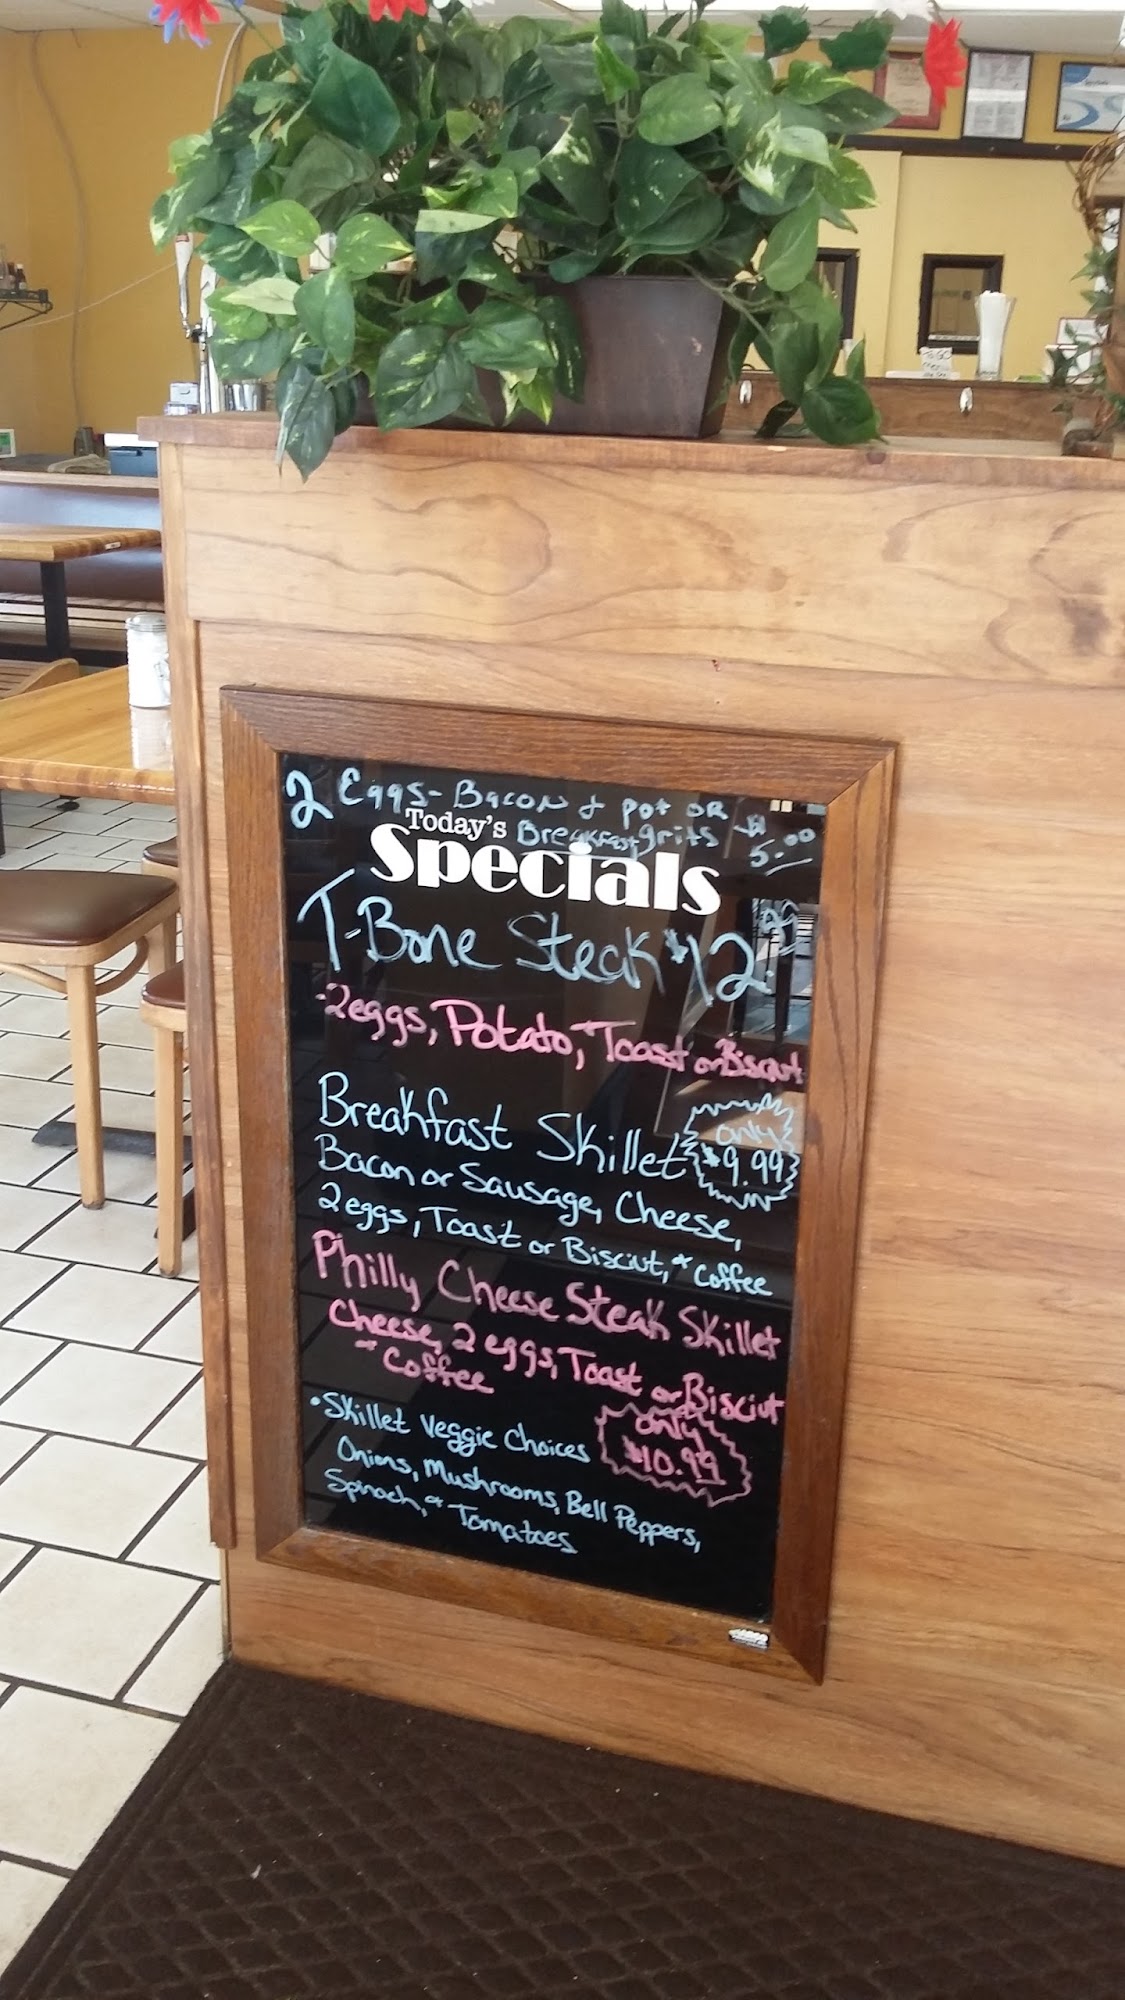 2 Eggs - Bacon & Pot OR
Breakfast grits $5.00
Today's
Specials
T-Bone Steak $12.
-2eggs, Potato, + Toast or Bisciut
Breakfast Skillet only $9.99
Bacon or Sausage, Cheese,
2 eggs, Toast or Bisciut, + Coffee
Philly Cheese Steak Skillet
Cheese, 2 eggs, Toast or Bisciut
+ Coffee
only
$10.99
• Skillet Veggie Choices
Onions, Mushrooms, Bell Peppers,
Spinach, + Tomatoes